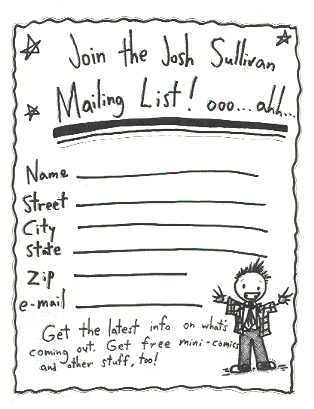 Join the Josh Sullivan
Mailing List! ooo...ahh...
Name
Street
City
State
Zip
e-mail
Get the latest info on what's
coming out. Get free mini-comics
and other stuff, too!